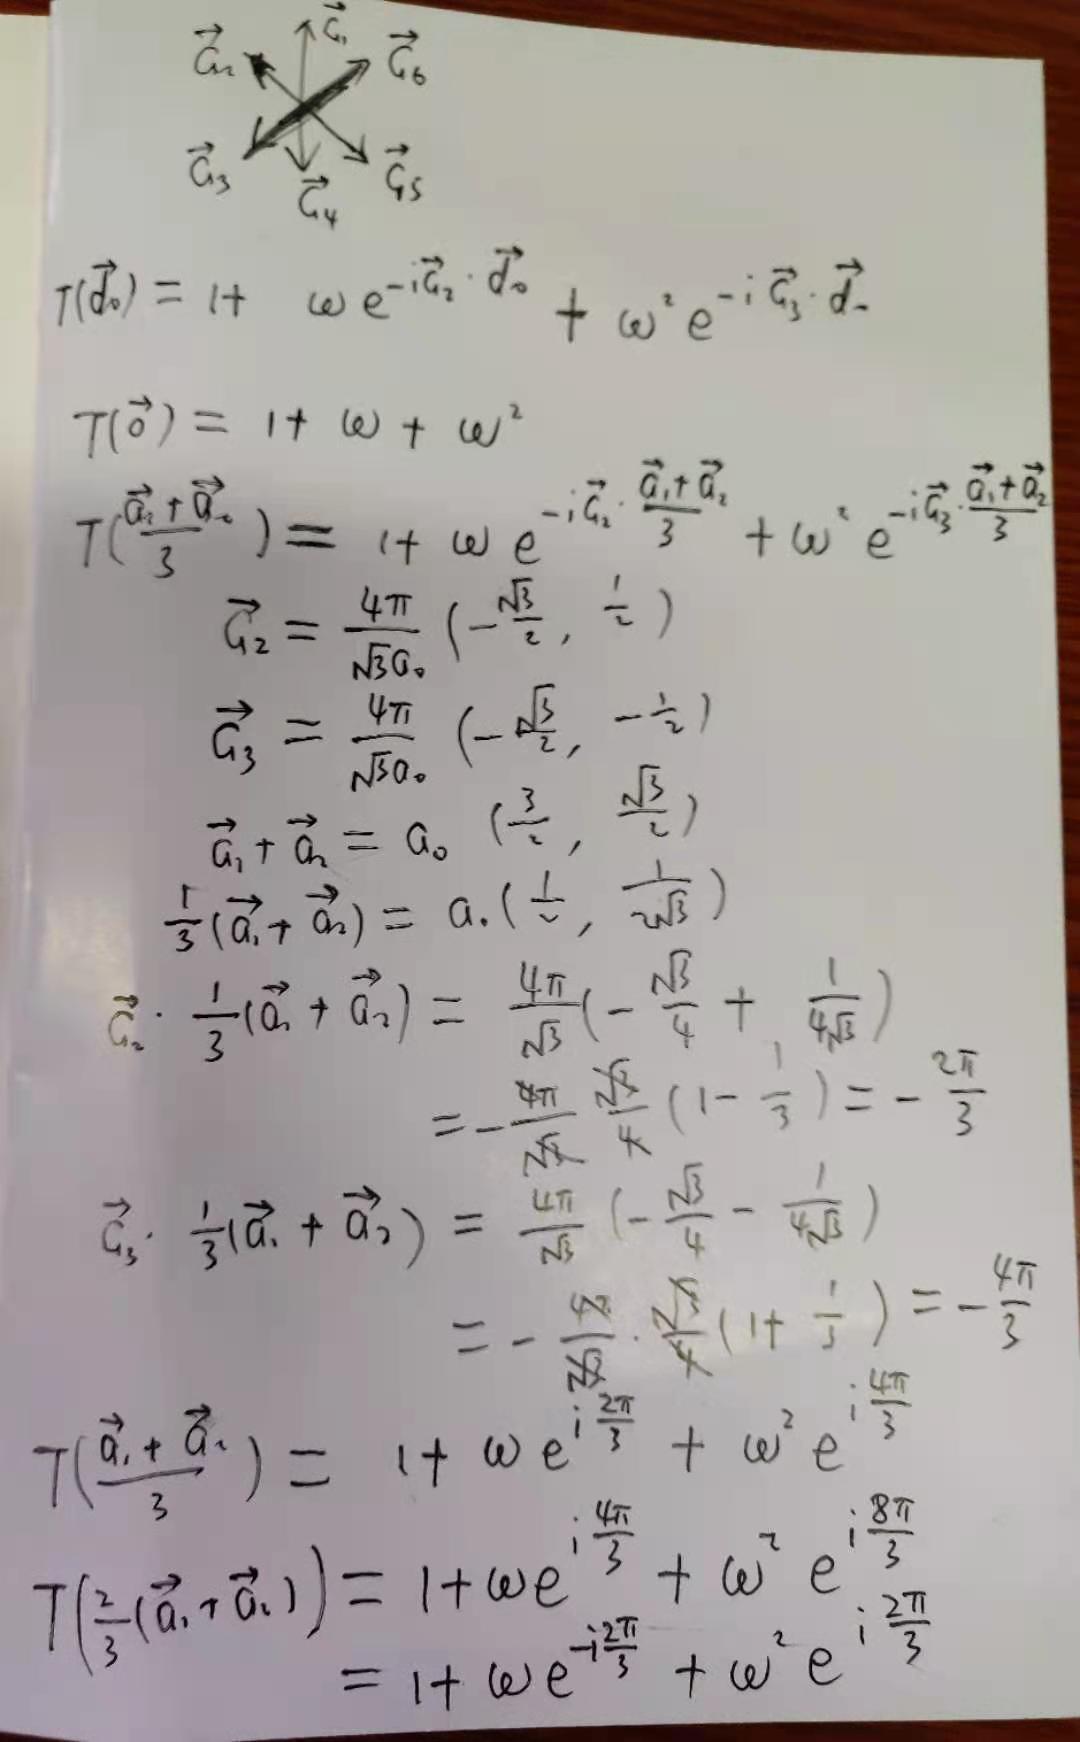 G⃗₁
G⃗₂ G⃗₆
G⃗₃ G⃗₄ G⃗₅
T(d⃗₀) = 1+ ωe^{-iG⃗₂·d⃗₀} + ω²e^{-iG⃗₃·d⃗₀}
T(0⃗) = 1+ ω + ω²
T((a⃗₁+a⃗₂)/3) = 1+ ωe^{-iG⃗₂·(a⃗₁+a⃗₂)/3} + ω²e^{-iG⃗₃·(a⃗₁+a⃗₂)/3}
G⃗₂ = 4π/(√3a₀) (-√3/2, 1/2)
G⃗₃ = 4π/(√3a₀) (-√3/2, -1/2)
a⃗₁+a⃗₂ = a₀ (3/2, √3/2)
1/3(a⃗₁+a⃗₂) = a₀(1/2, 1/(2√3))
G⃗₂· 1/3(a⃗₁+a⃗₂) = 4π/√3(-√3/4 + 1/(4√3))
= -4π/√3 √3/4 (1-1/3) = -2π/3
G⃗₃· 1/3(a⃗₁+a⃗₂) = 4π/√3 (-√3/4 - 1/(4√3))
= -4π/√3 · √3/4 (1+1/3) = -4π/3
T((a⃗₁+a⃗₂)/3) = 1+ ωe^{i2π/3} + ω²e^{i4π/3}
T(2/3(a⃗₁+a⃗₂)) = 1+ωe^{i4π/3} + ω²e^{i8π/3}
= 1+ωe^{-i2π/3} + ω²e^{i2π/3}